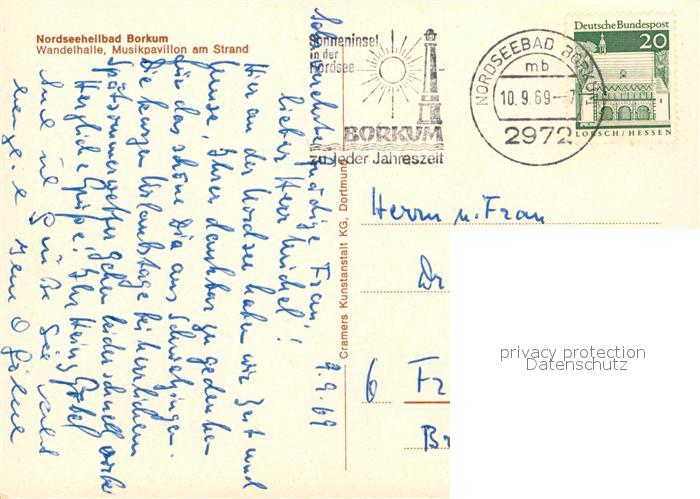 Nordseeheilbad Borkum
Wandelhalle, Musikpavillon am Strand
Sonneninsel
in der
Nordsee
BORKUM
zu jeder Jahreszeit
NORDSEEBAD BORKUM
mb
10.9.69-7
2972
Deutsche Bundespost
20
LORSCH / HESSEN
Cramers Kunstanstalt KG, Dortmund
9.9.69
Sehr verehrte gnädige Frau,
lieber Herr Michel!
Hier an der Nordsee haben wir Zeit und
Muse, Ihrer dankbar zu gedenken
für das schöne Dia aus Schwetzingen.
Die kurzen Urlaubstage bei herrlichem
Spätsommerwetter gehen leider schnell vorbei
Herzliche Grüße! Ihr Heinz Göbel
Grüße
Herrn u. Frau
Dr
6 Fr
Br
privacy protection
Datenschutz